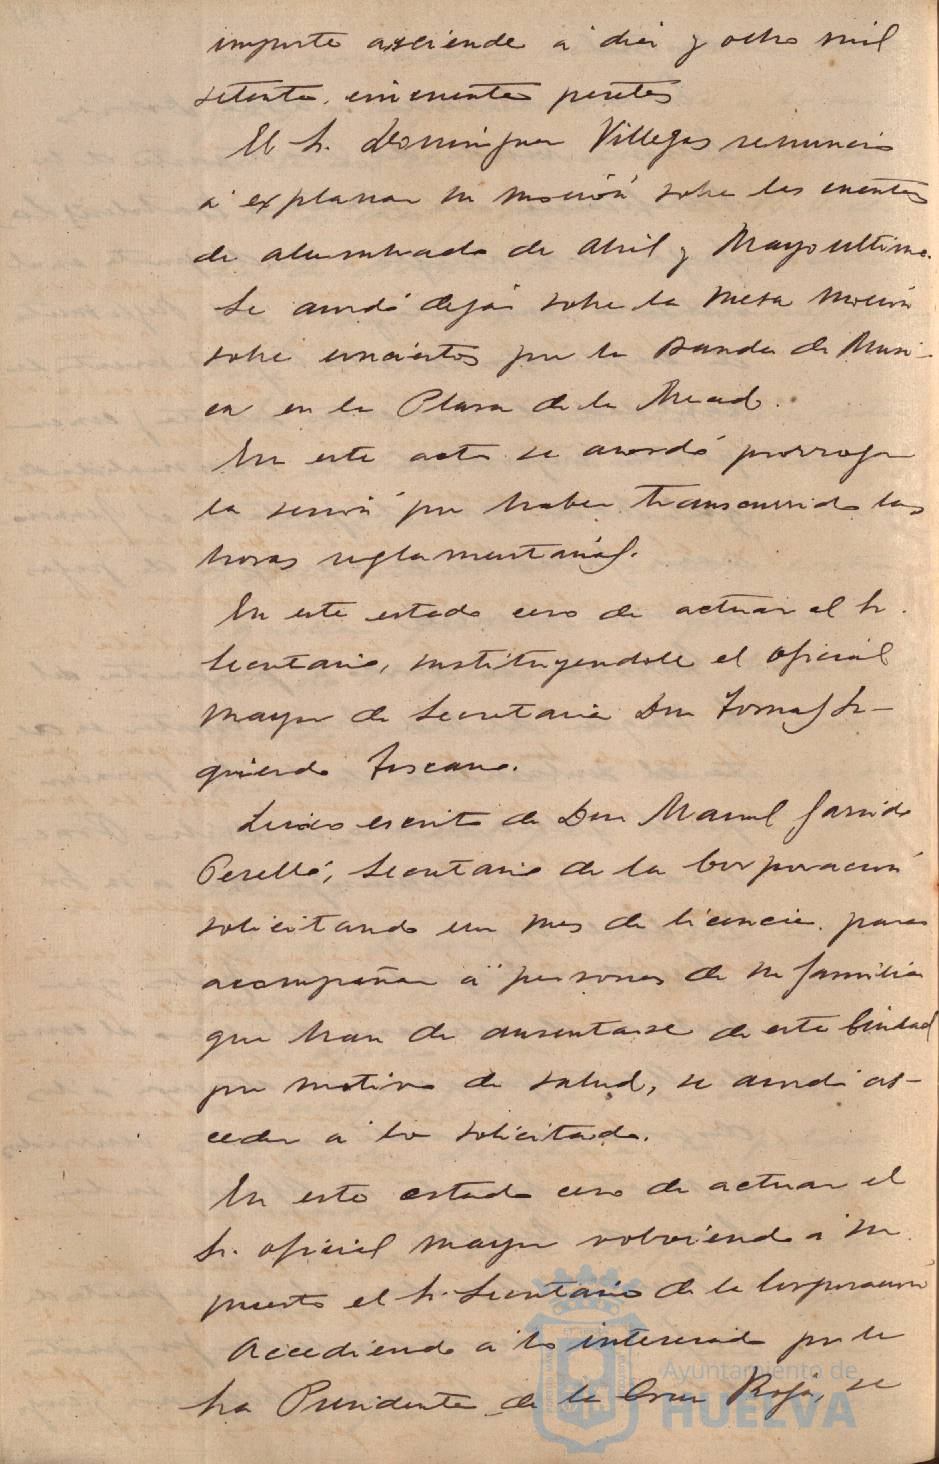 importe asciende á diez y ocho mil
setenta, cincuenta pesetas
El Sr. Dominguez Villegas renuncia
á explanar su moción sobre las cuentas
de alumbrado de Abril y Mayo último.
Se acordó dejar sobre la Mesa moción
sobre conciertos por la Banda de Musi-
ca en la Plaza de la Merced.
En este acto se acordó prorrogar
la sesión por haber transcurrido las
horas reglamentarias.
En este estado ceso de actuar el Sr.
Secretario, sustituyendole el oficial
mayor de Secretaria Don Tomas Iz-
quierdo Toscano.
Leido escrito de Don Manuel Garrido
Perelló, Secretario de la Corporación
solicitando un mes de licencia para
acompañar á personas de su familia
que han de ausentarse de esta Ciudad
por motivo de salud, se acordó ac-
ceder a lo solicitado.
En este estado ceso de actuar el
Sr. oficial mayor volviendo á su
puesto el Sr. Secretario de la Corporación
Accediendo á lo interesado por la
Sra Presidenta de la Cruz Roja, se
Ayuntamiento de
HUELVA